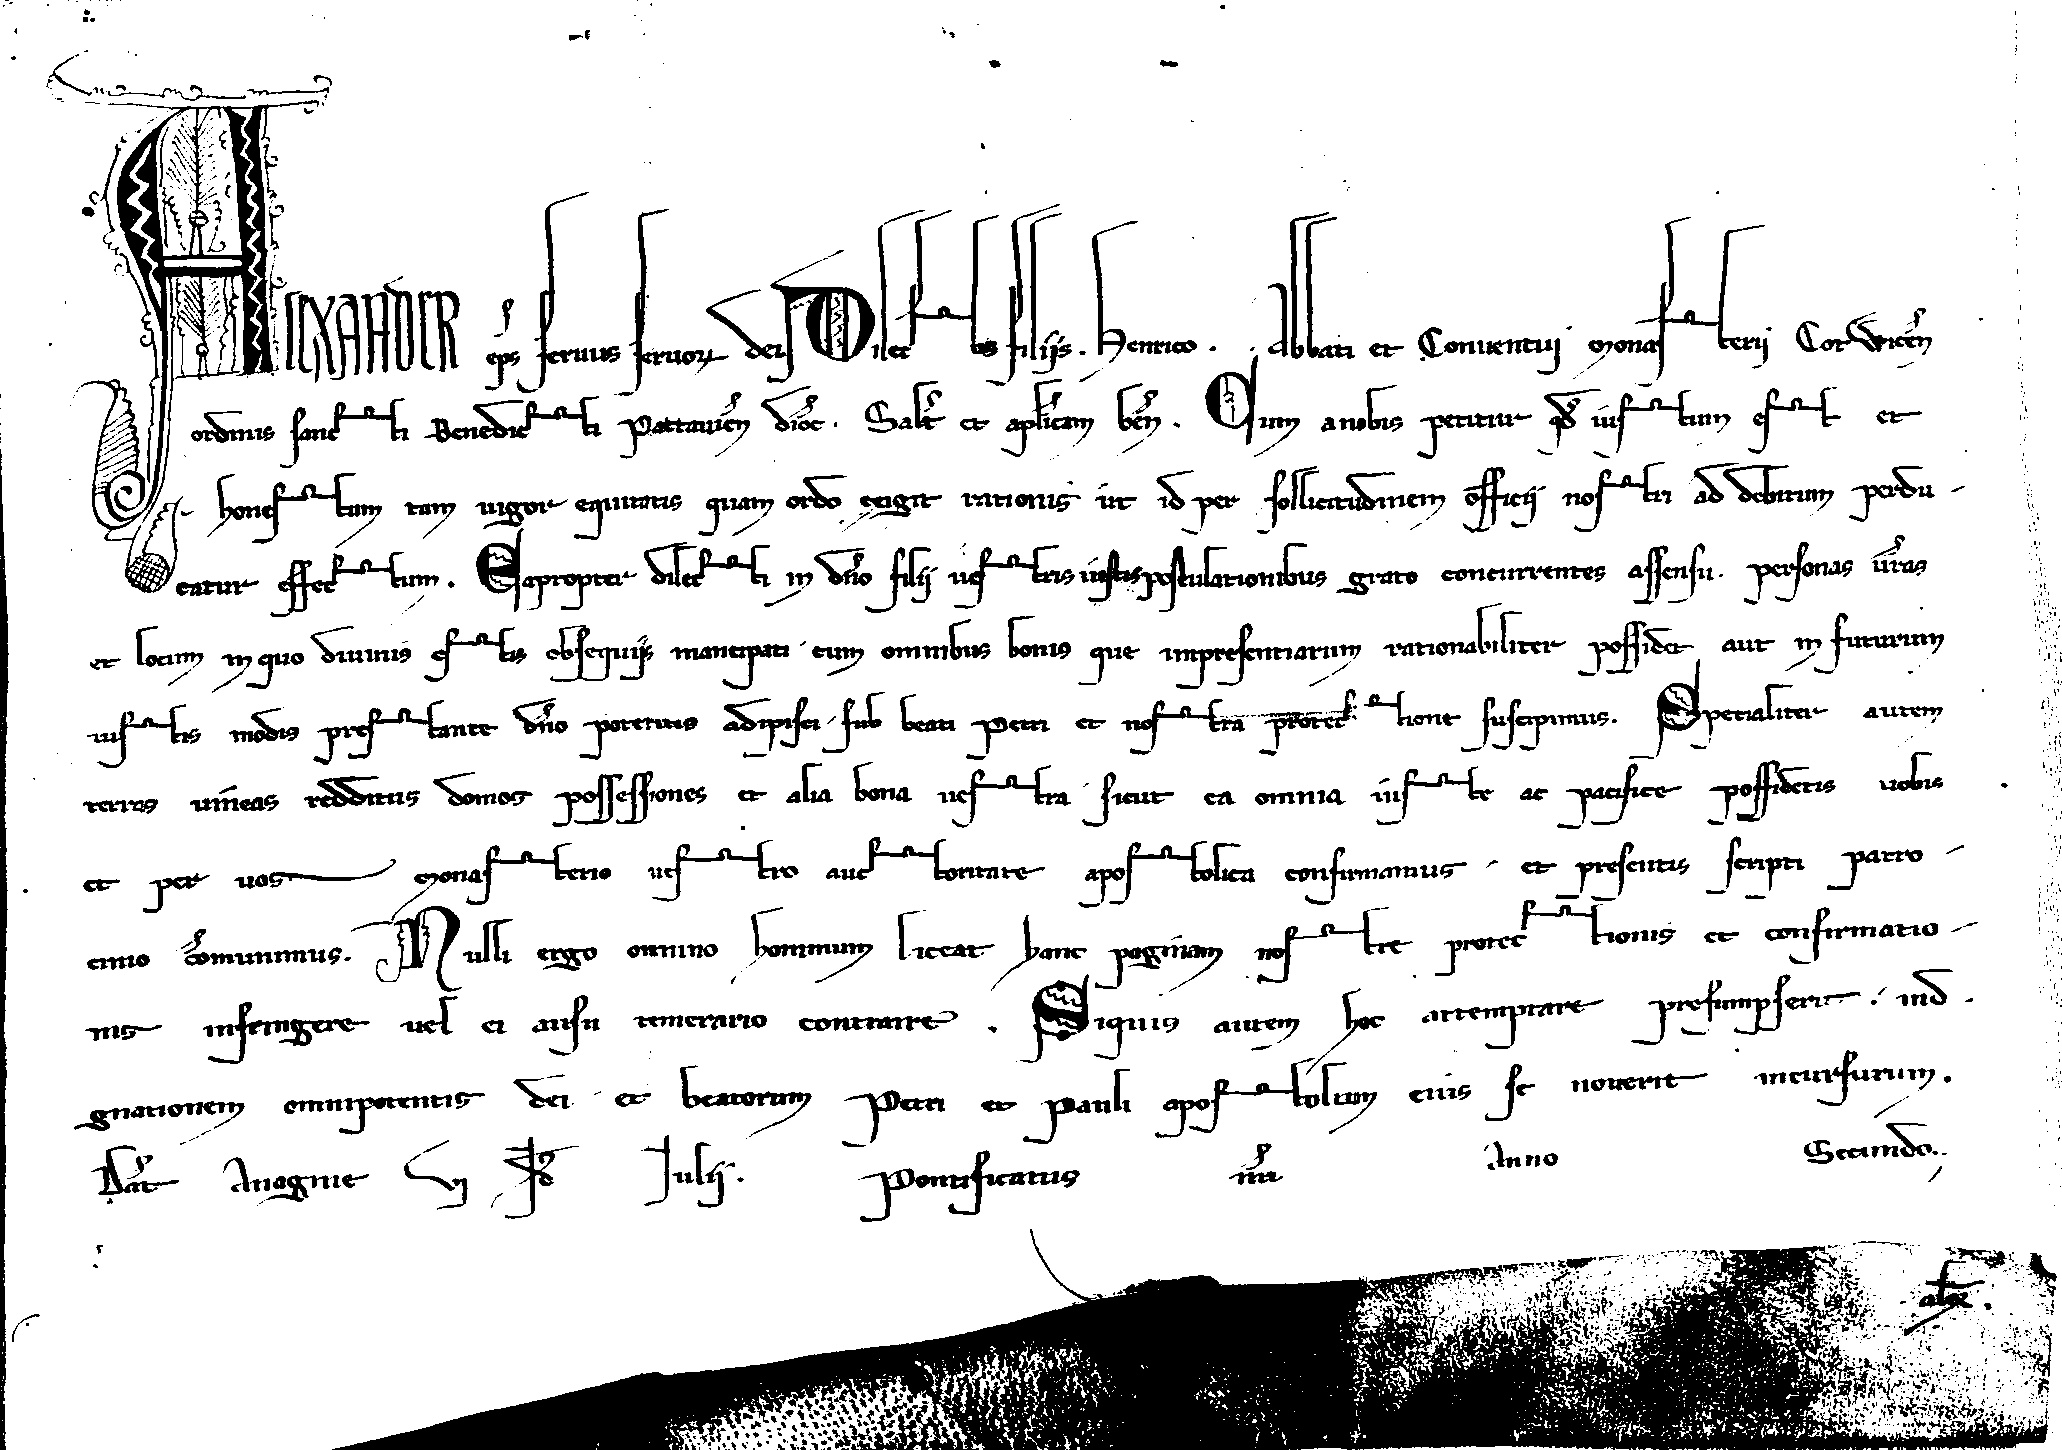 ALEXANDER eps seruus seruor dei Dilectis filiis. Henrico. Abbati et Conuentui Monasterii Cotwicen
ordinis sancti Benedicti Pattauien dioc. Salt et aplicam ben. Cum a nobis petitur qd iustum est et
honestum tam uigor equitatis quam ordo exigit rationis ut id per sollicitudinem officii nostri ad debitum perdu-
catur effectum. Eapropter dilecti in dno filii uestris iustis postulationibus grato concurrentes assensu. personas uras
et locum in quo diuinis estis obsequiis mancipati cum omnibus bonis que impresentiarum rationabiliter possidet aut in futurum
iustis modis prestante dno poteritis adipisci. sub beati Petri et nostra protectione suscipimus. Specialiter autem
terras uineas redditus domos possessiones et alia bona uestra sicut ea omnia iuste ac pacifice possidetis uobis
et per uos Monasterio uestro auctoritate apostolica confirmamus et presentis scripti patro-
cinio comunimus. Nulli ergo omnino hominum liceat hanc paginam nostre protectionis et confirmatio-
nis infringere uel ei ausu temerario contraire. Siquis autem hoc attemptare presumpserit. ind
gnationem omnipotentis dei et beatorum Petri et Pauli apostolorum eius se nouerit incursurum.
Dat Anagnie VI Kl Iulii. Pontificatus nri Anno Secundo.